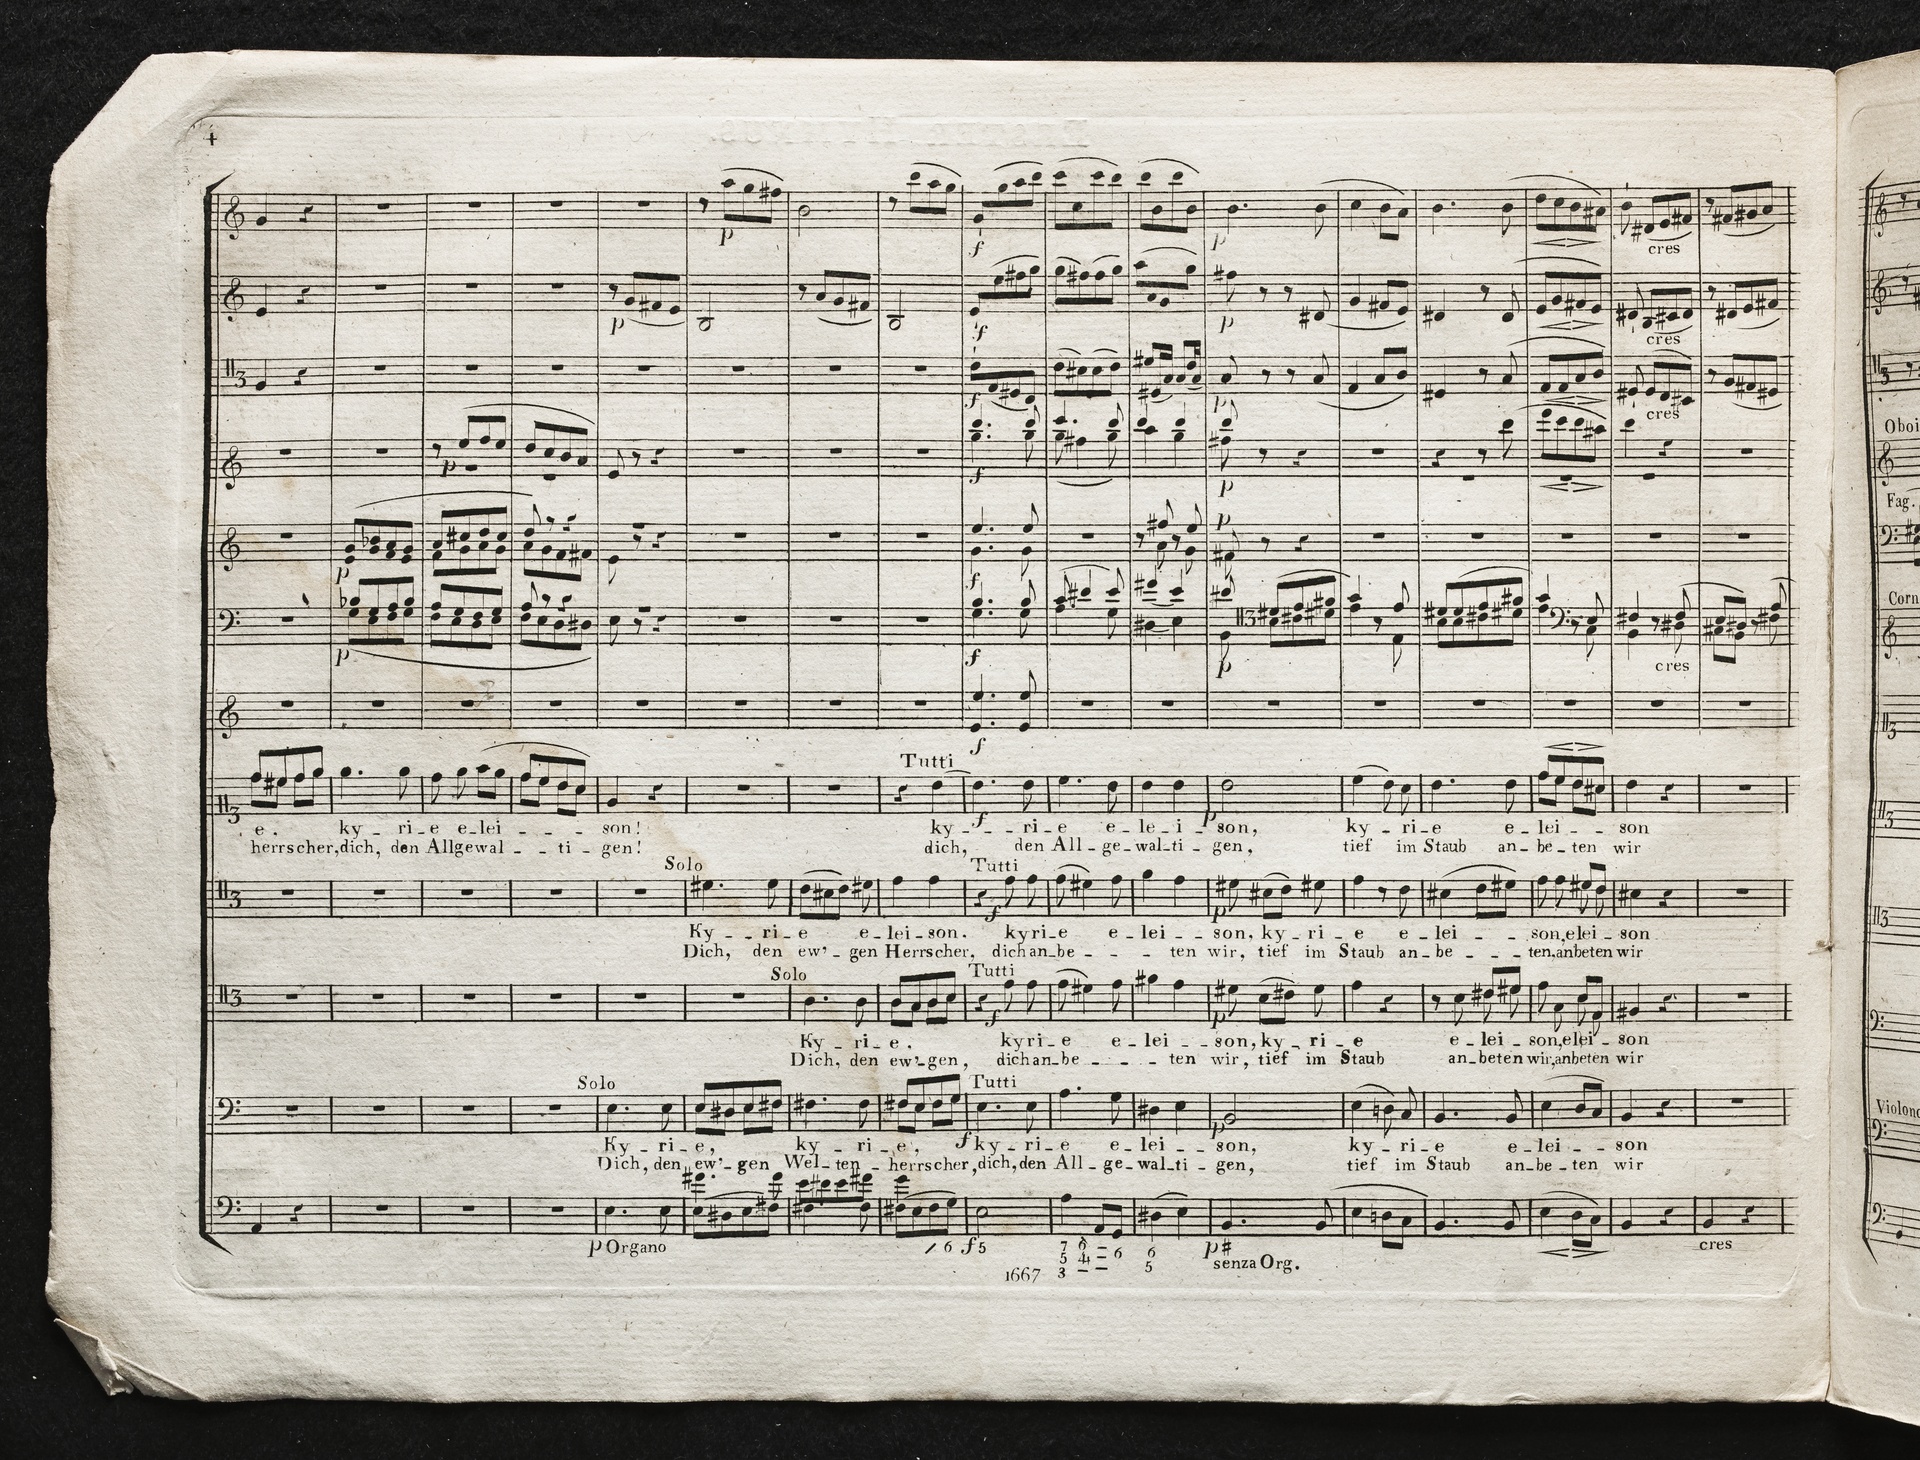 4
p
f
p
cres
p
f
p
cres
f
p
cres
Oboi
p
f
p
Fag.
p
p
f
p
f
p
cres
Corn
f
Tutti
f
p
e. ky - ri - e e - lei - - - son! ky - - ri - e e - le - i - son, ky - ri - e e - lei - - son
herrscher, dich, den Allgewal - - ti - gen! dich, den All - ge - wal - ti - gen, tief im Staub an - be - ten wir
Solo Tutti
f
p
Ky - - ri - e e - lei - son. kyrie e - lei - - son, ky - ri - e e - lei - - son, elei - son
Dich, den ew' - gen Herrscher, dich an - be - - - ten wir, tief im Staub an - be - - - ten, anbeten wir
Solo Tutti
f
p
Ky - ri - e. kyri - e e - lei - - son, ky - ri - e e - lei - son, elei - son
Dich, den ew' - gen, dich an - be - - - - ten wir, tief im Staub an - beten wir, anbeten wir
Solo Tutti
f
p
Violonc
Ky - ri - e, ky - ri - e, ky - ri - e e - lei - - son, ky - ri - e e - lei - - son
Dich, den ew' - gen Wel - ten - herrscher, dich, den All - ge - wal - ti - gen, tief im Staub an - be - ten wir
p Organo 6 f 5 7 6 - 6 6 p # cres
5 4 - 5 senza Org.
3 - -
1667